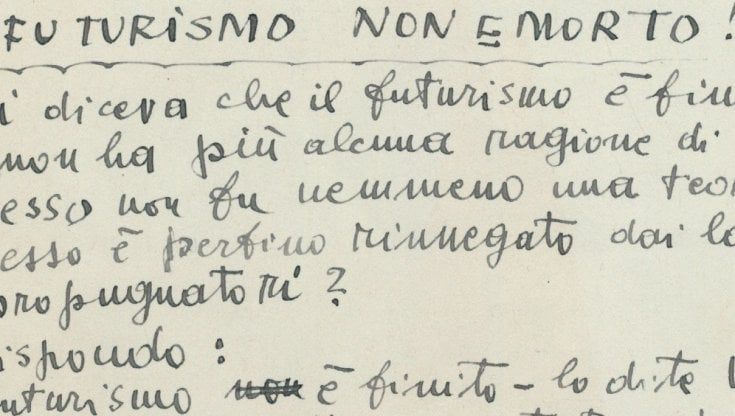 FUTURISMO NON È MORTO!
i diceva che il futurismo è fin
non ha più alcuna ragione di
esso non fu nemmeno una teor
esso è perfino rinnegato dai lo
propugnatori?
ispondo:
uturismo non è finito – lo dite